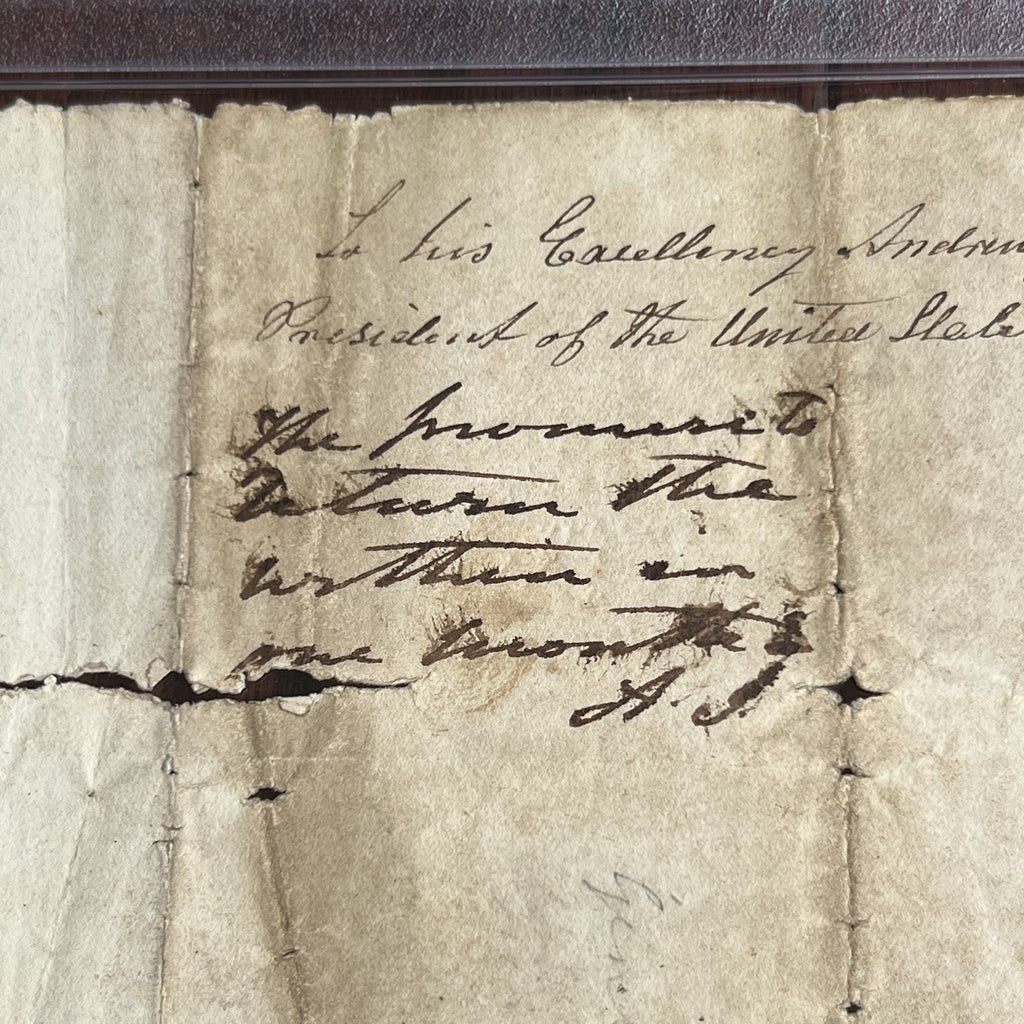 To his Excellency Andrew
President of the United State
The promise to
return the
within in
one month
A. J.